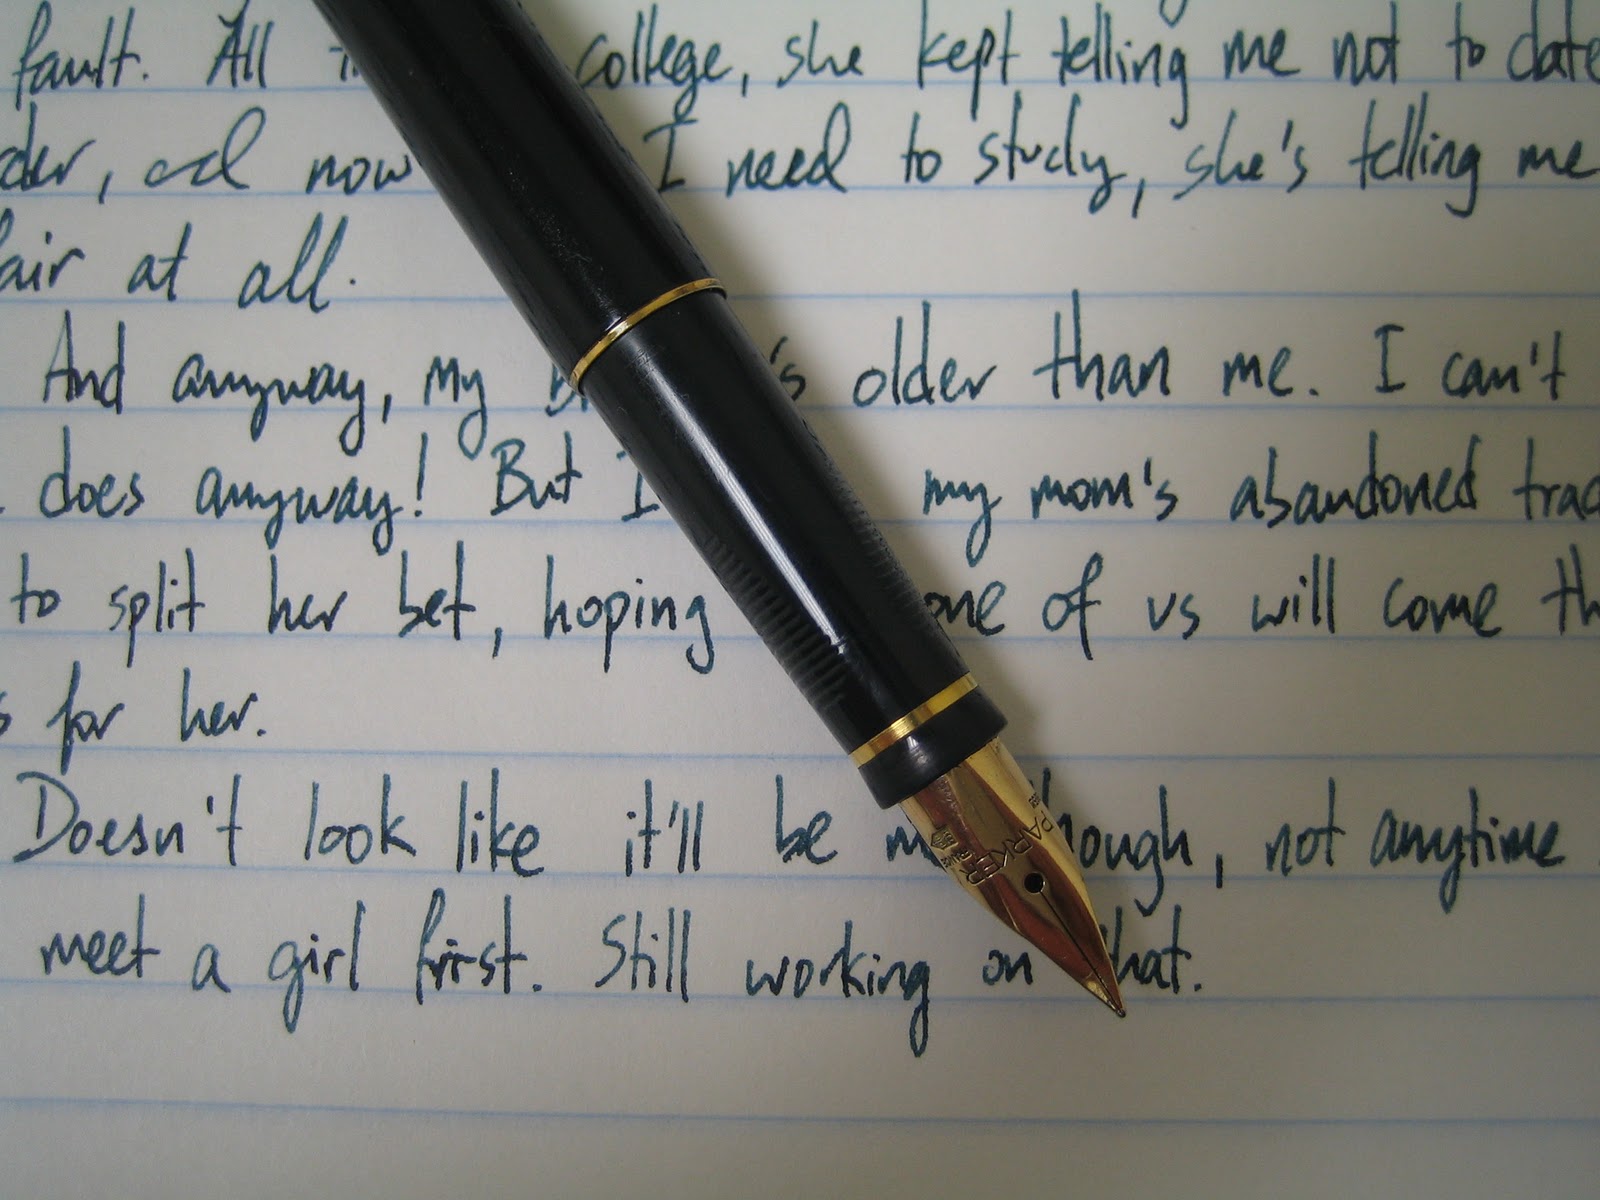 fault. All college, she kept telling me not to date
der, and now I need to study, she's telling me
fair at all.
And anyway, my 's older than me. I can't
does anyway! But I my mom's abandoned trac
to split her bet, hoping one of us will come th
s for her.
Doesn't look like it'll be though, not anytime
meet a girl first. Still working on that.
PARKER